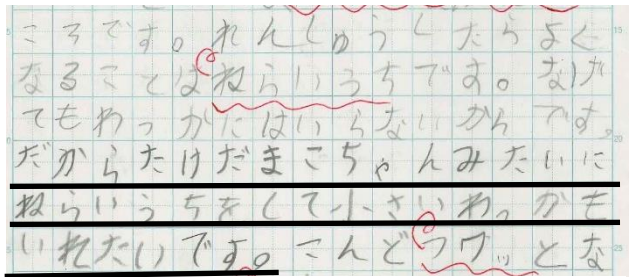 ころです。れんしゅうしたらよく
なることはねらいうちです。なげ
てもわっかにはいらないからです。
だからたけだまこちゃんみたいに
ねらいうちをして小さいわっかも
いれたいです。こんどつワッとな